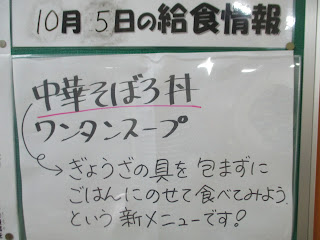 10月 5日の給食情報
中華そぼろ丼
ワンタンスープ
ぎょうざの具を包まずに
ごはんにのせて食べてみよう
という新メニューです!